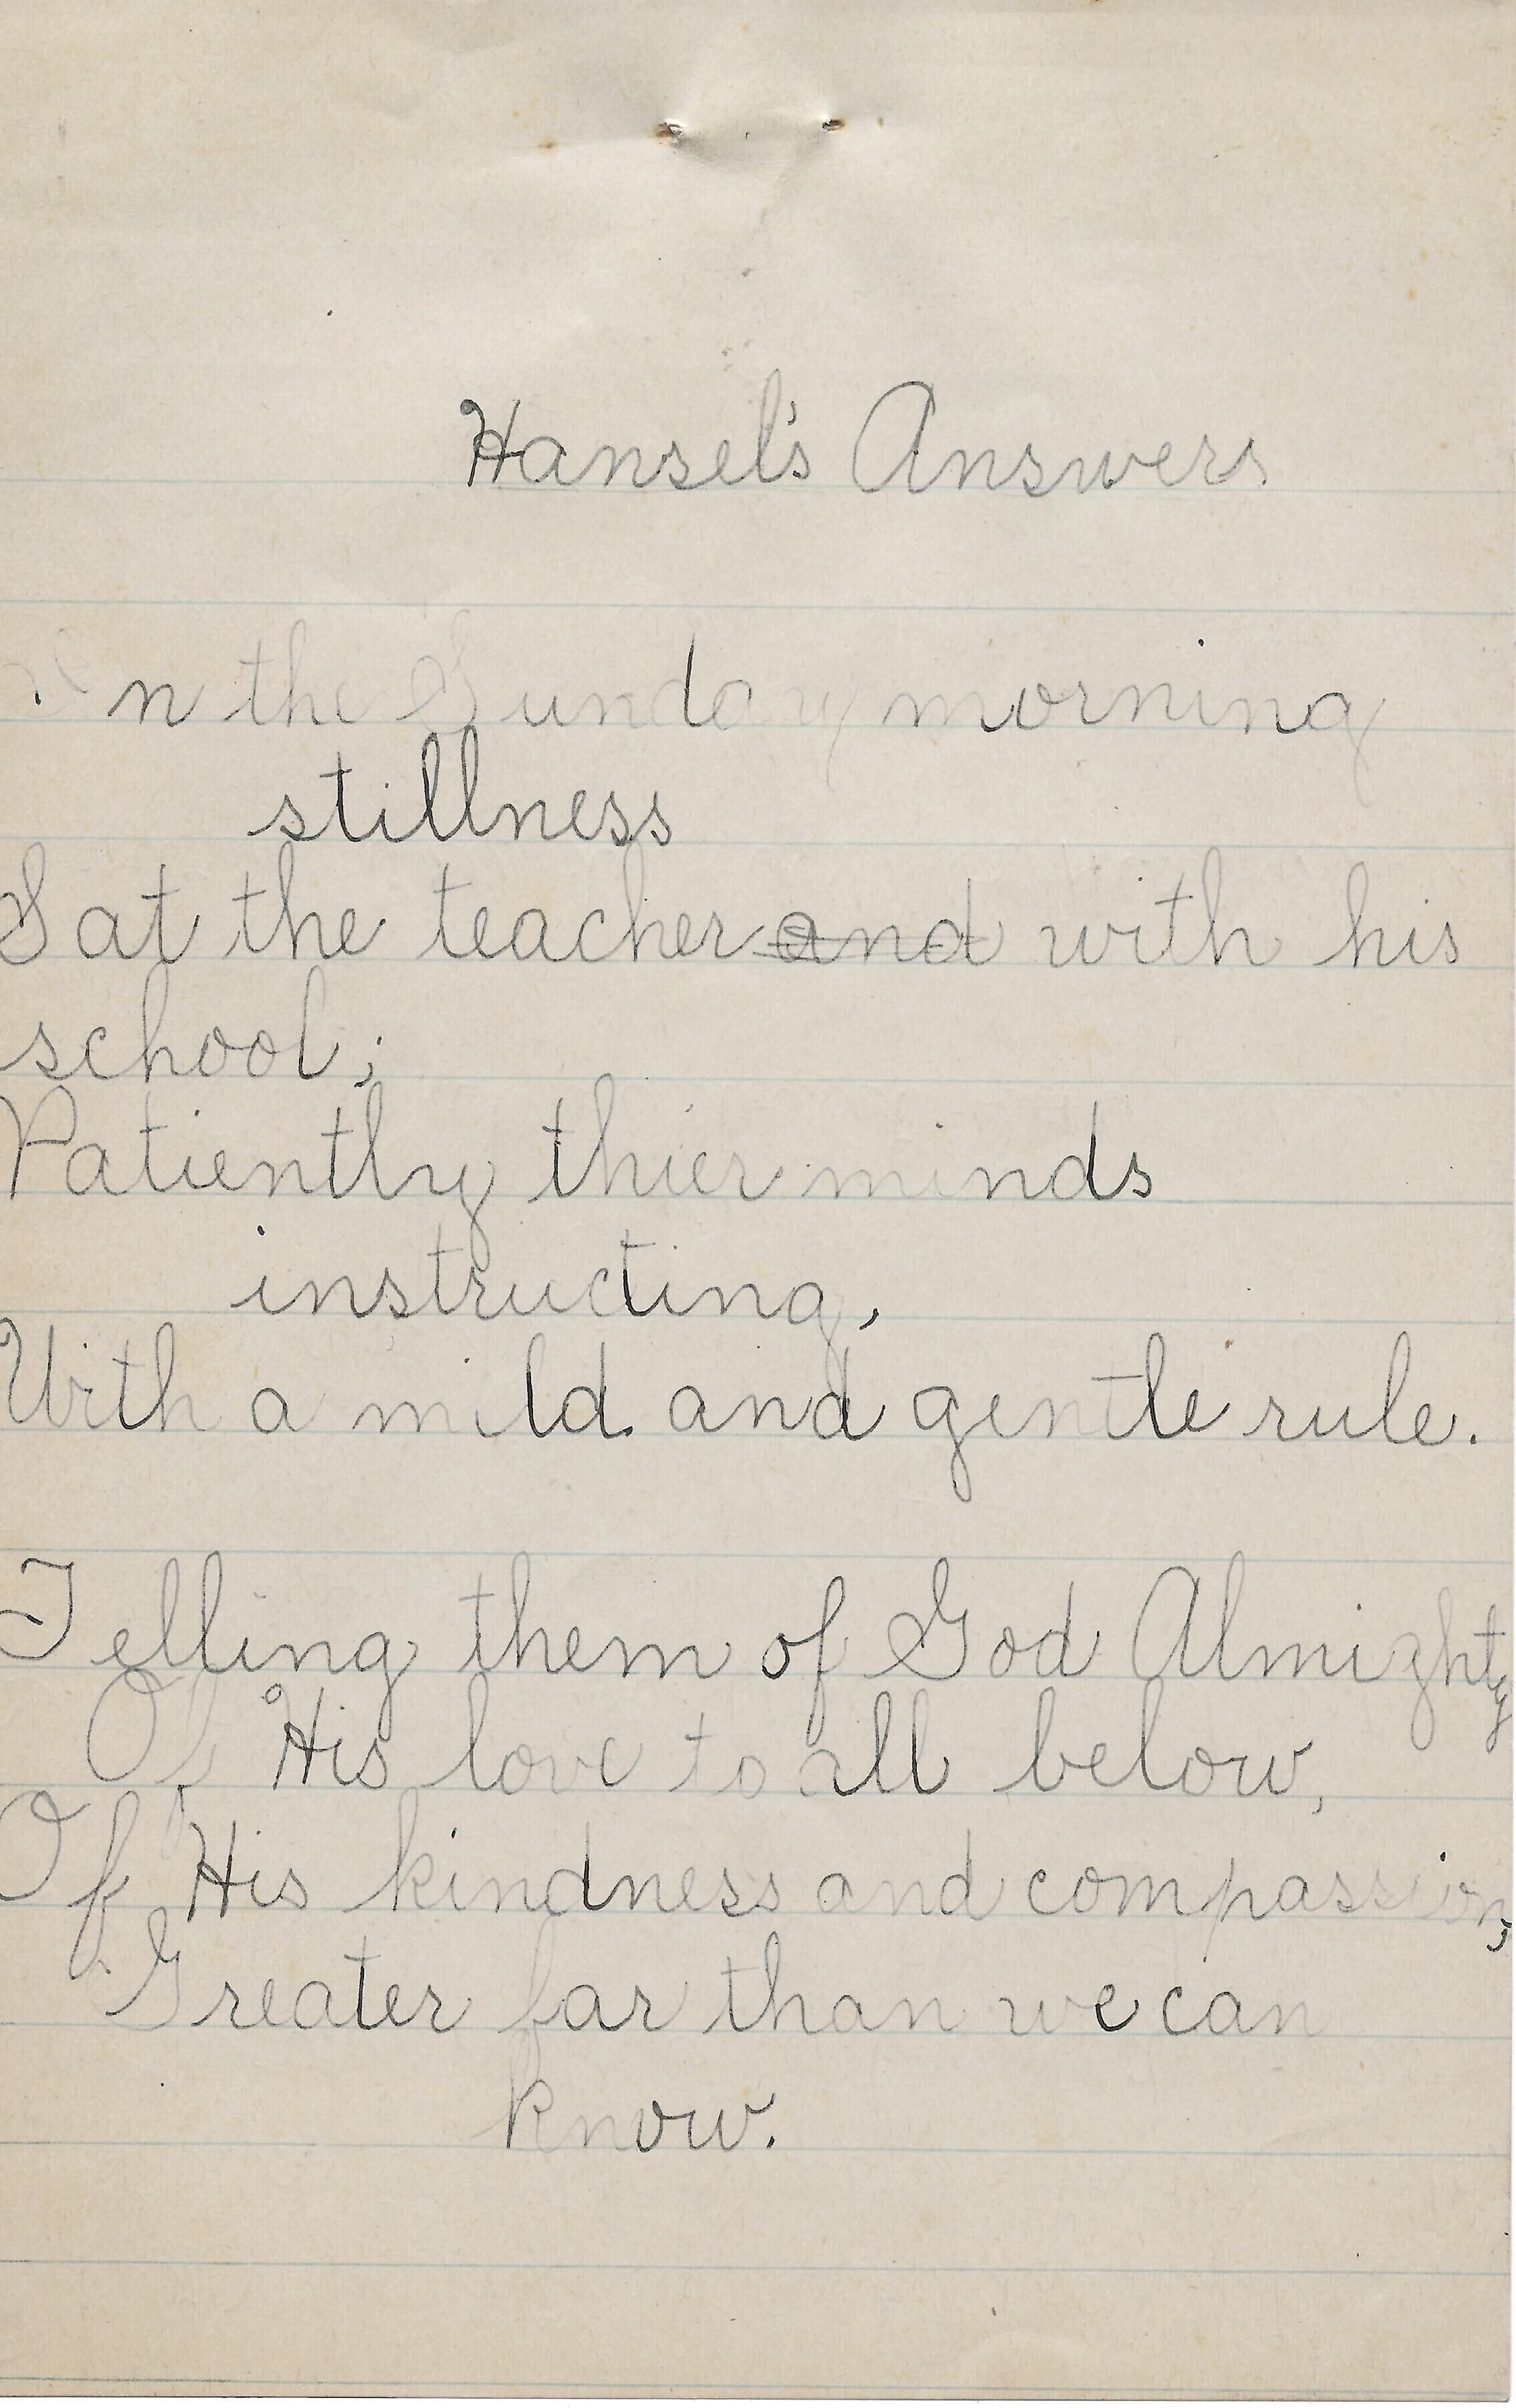 Hansel's Answers.
In the Sunday morning
stillness
Sat the teacher and with his
school;
Patiently thier minds
instructing,
With a mild and gentle rule.
Telling them of God Almighty
Of His love to all below,
Of His kindness and compassion,
Greater far than we can
know.